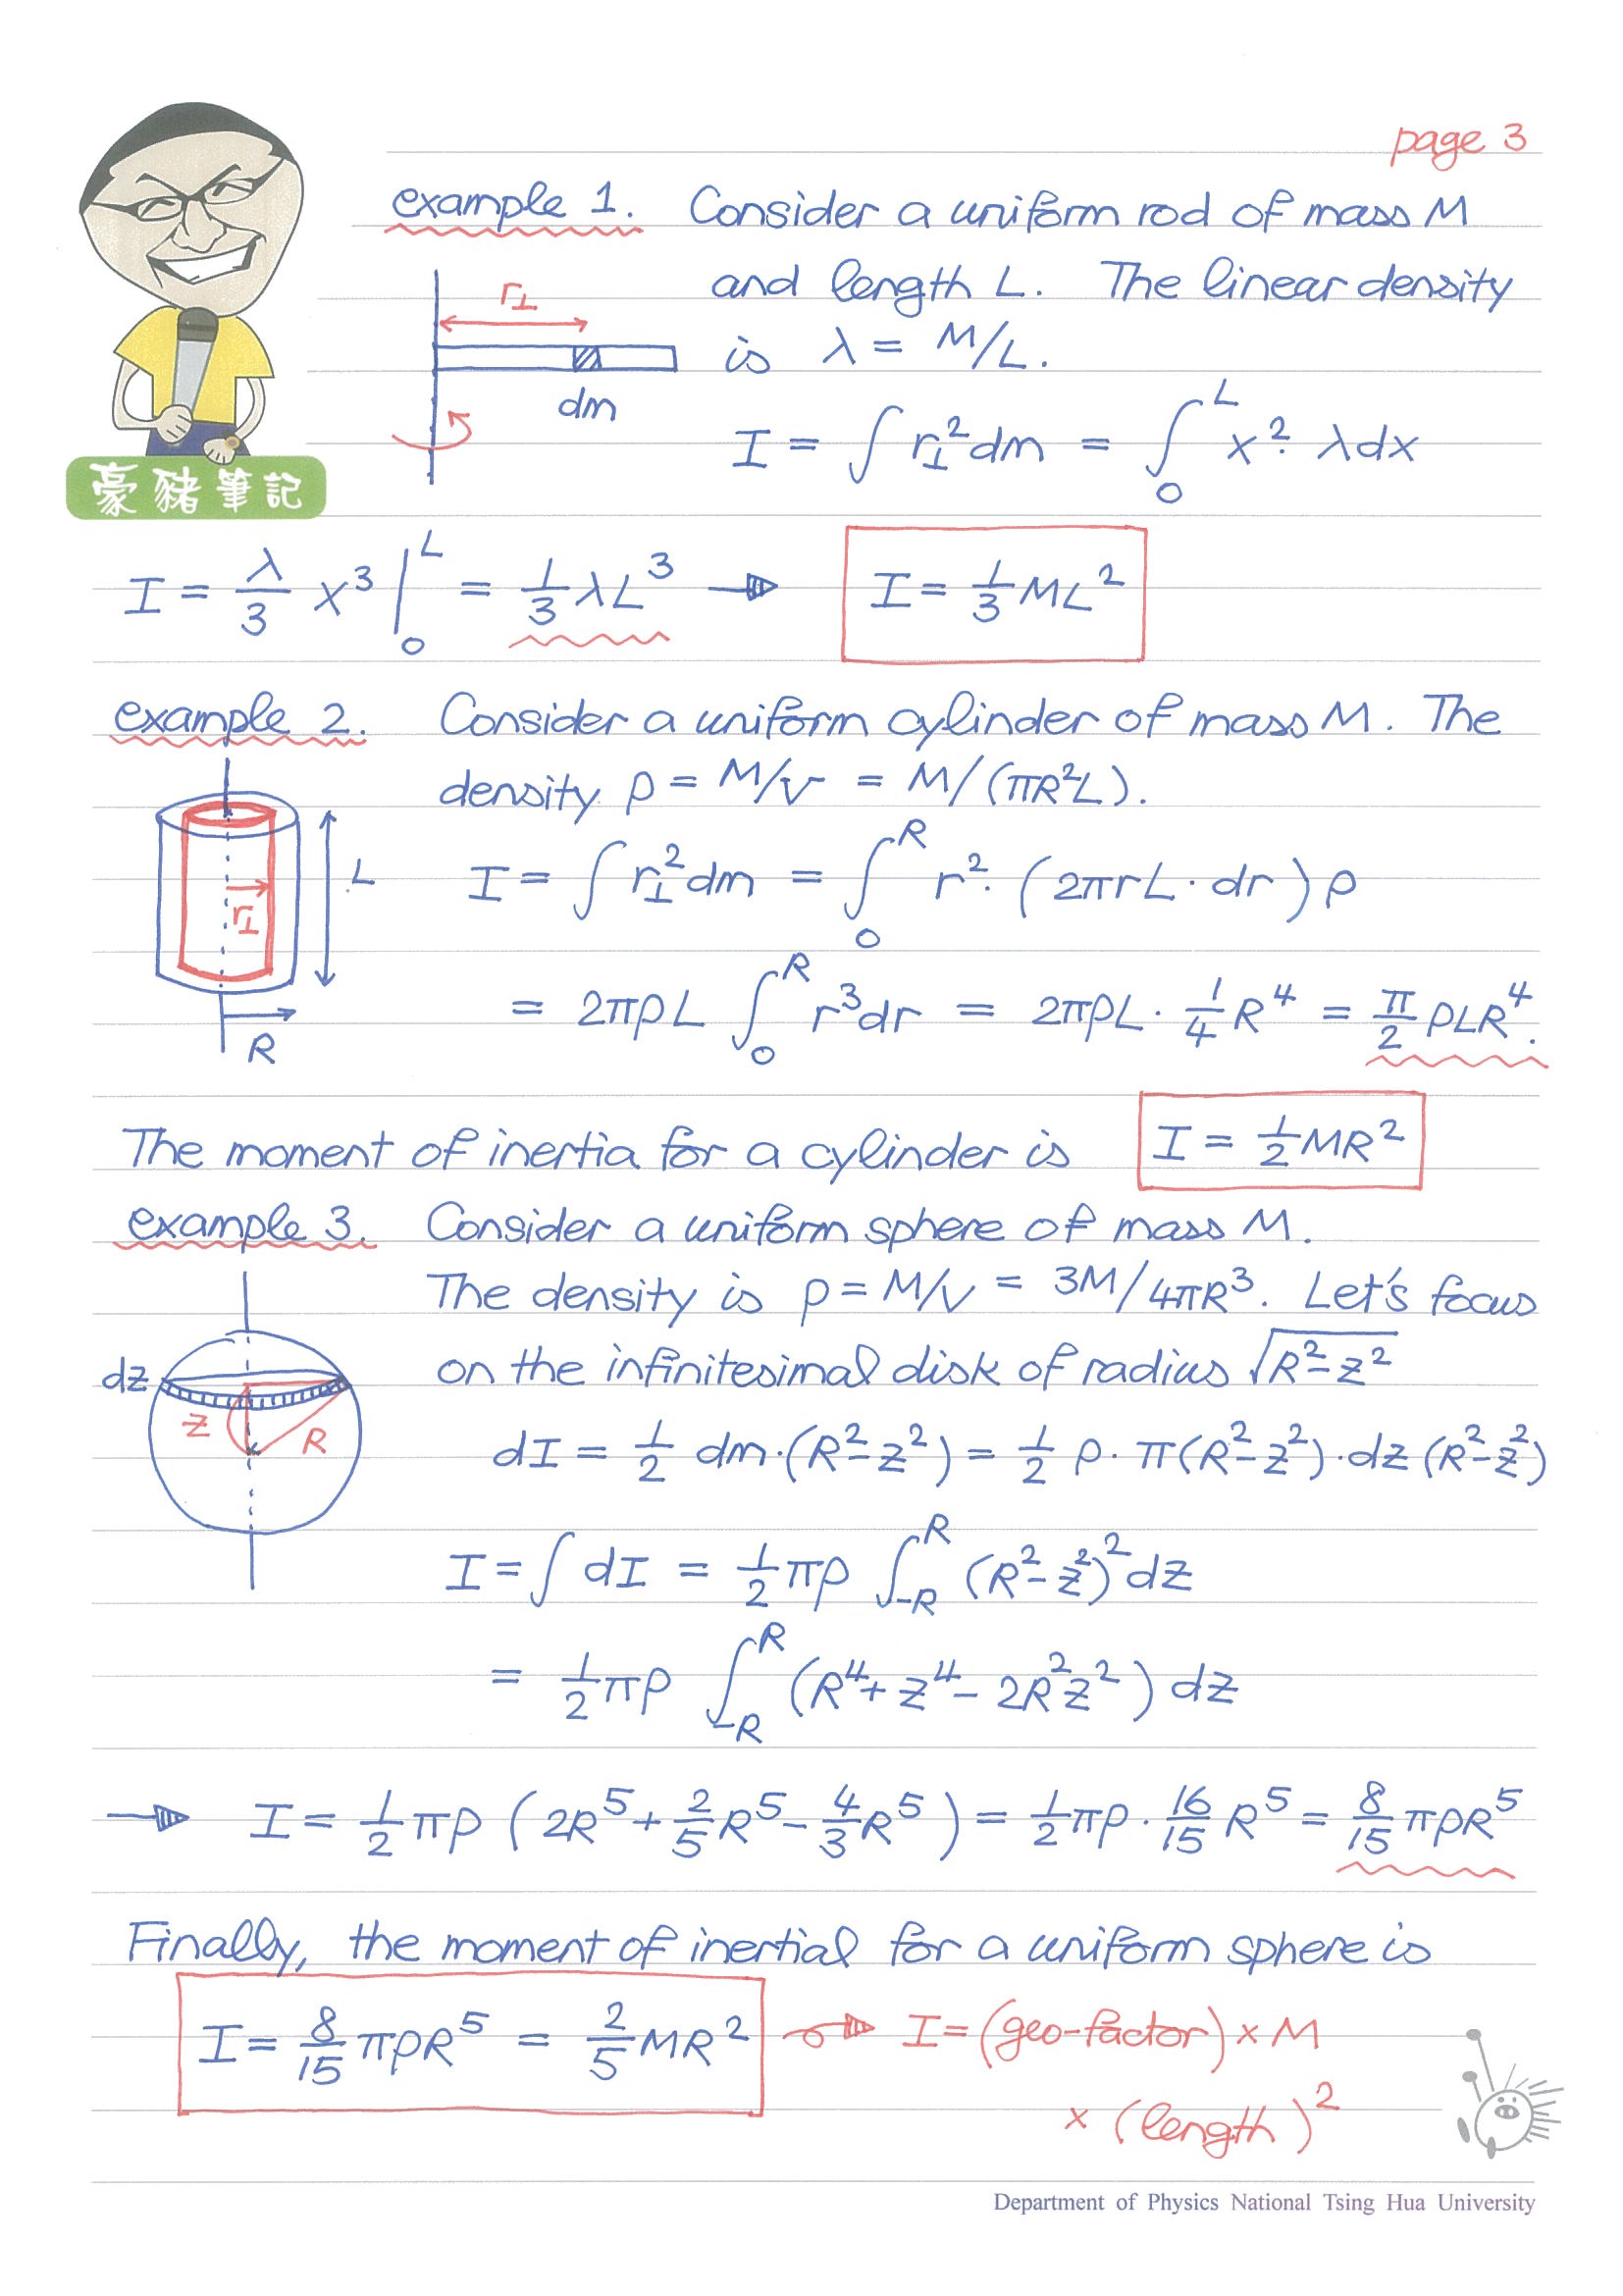 page 3
example 1. Consider a uniform rod of mass M
and length L. The linear density
r⊥
is λ = M/L.
dm
I = ∫ r⊥² dm = ∫₀ᴸ x² · λdx
豪豬筆記
I = λ/3 x³ |₀ᴸ = 1/3 λL³ → I = 1/3 ML²
example 2. Consider a uniform cylinder of mass M. The
density ρ = M/V = M/(πR²L).
L
r⊥
R
I = ∫ r⊥² dm = ∫₀ᴿ r² · (2πrL · dr) ρ
= 2πρL ∫₀ᴿ r³dr = 2πρL · 1/4 R⁴ = π/2 ρLR⁴.
The moment of inertia for a cylinder is I = 1/2 MR²
example 3. Consider a uniform sphere of mass M.
The density is ρ = M/V = 3M/4πR³. Let's focus
on the infinitesimal disk of radius √(R²-z²)
dz
z
R
dI = 1/2 dm · (R²-z²) = 1/2 ρ · π(R²-z²) · dz (R²-z²)
I = ∫ dI = 1/2 πρ ∫₋ᴿᴿ (R²-z²)² dz
= 1/2 πρ ∫₋ᴿᴿ (R⁴+z⁴-2R²z²) dz
→ I = 1/2 πρ (2R⁵ + 2/5 R⁵ - 4/3 R⁵) = 1/2 πρ · 16/15 R⁵ = 8/15 πρR⁵
Finally, the moment of inertial for a uniform sphere is
I = 8/15 πρR⁵ = 2/5 MR² → I = (geo-factor) × M
× (length)²
Department of Physics National Tsing Hua University